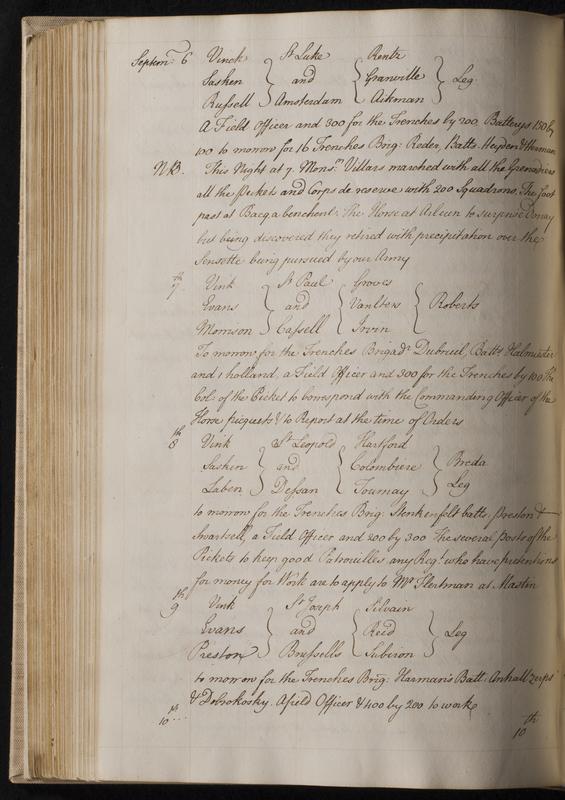 Septem.r 6 Vinck } St Luke { Rentz }
Sasken } and { Granville } Leg
Russell } Amsterdam { Aikman }
A Field Officer and 300 for the Trenches by 200, Batterys 150 by
100 to morrow for 16 Trenches Brig: Reder, Batts. Heyden & Herman
NB. This Night at 7. Mons.rs Villars marched with all the Grenadiers
all the Pickets and Corps de reserve with 200 Squadrons, The foot
past at Bacq a benchent. The Horse at Arleux to surprise Douay
but being discovered they retired with precipitation over the
Sensette being pursued by our Army
7th Vink } St Paul { Groves
Evans } and { Vanlters { Roberts
Morrison } Cassell { Irvin
To morrow for the Trenches Brigad.r Dubreuil, Batts.
and 1 holland, a Field Officer and 300 for the Trenches by 100 The
Col: of the Picket to Correspond with the Commanding Officer of the
Horse picquets & to Report at the time of Orders
8th Vink } St Leopold { Hartford
Sasken } and { Colombiere } Breda
Laben } Dessan { Tournay } Leg
to morrow for the Trenches Brig: Stenkenfelt batts. Preston &
Swartsell, a Field Officer and 200 by 300 The several Posts of the
Pickets to keep good Patrouilles any Reg.t who have pretentions
for money for Work are to apply to Mr Slertman at Mastin
9th Vink } St Joseph { Silvain
Evans } and { Reed } Leg
Preston } Brussells { Suberon
to morrow for the Trenches Brig: Harman's Batt. Anhall Zerps
& Dobrokosky. A field Officer & 400 by 200 to work
10th...
10th